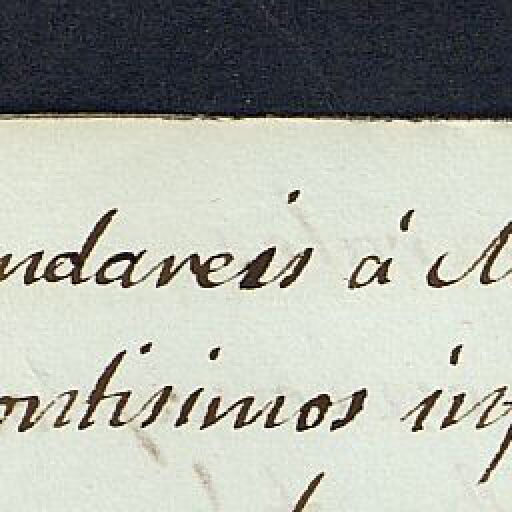 ndareis á M
ontisimos inf